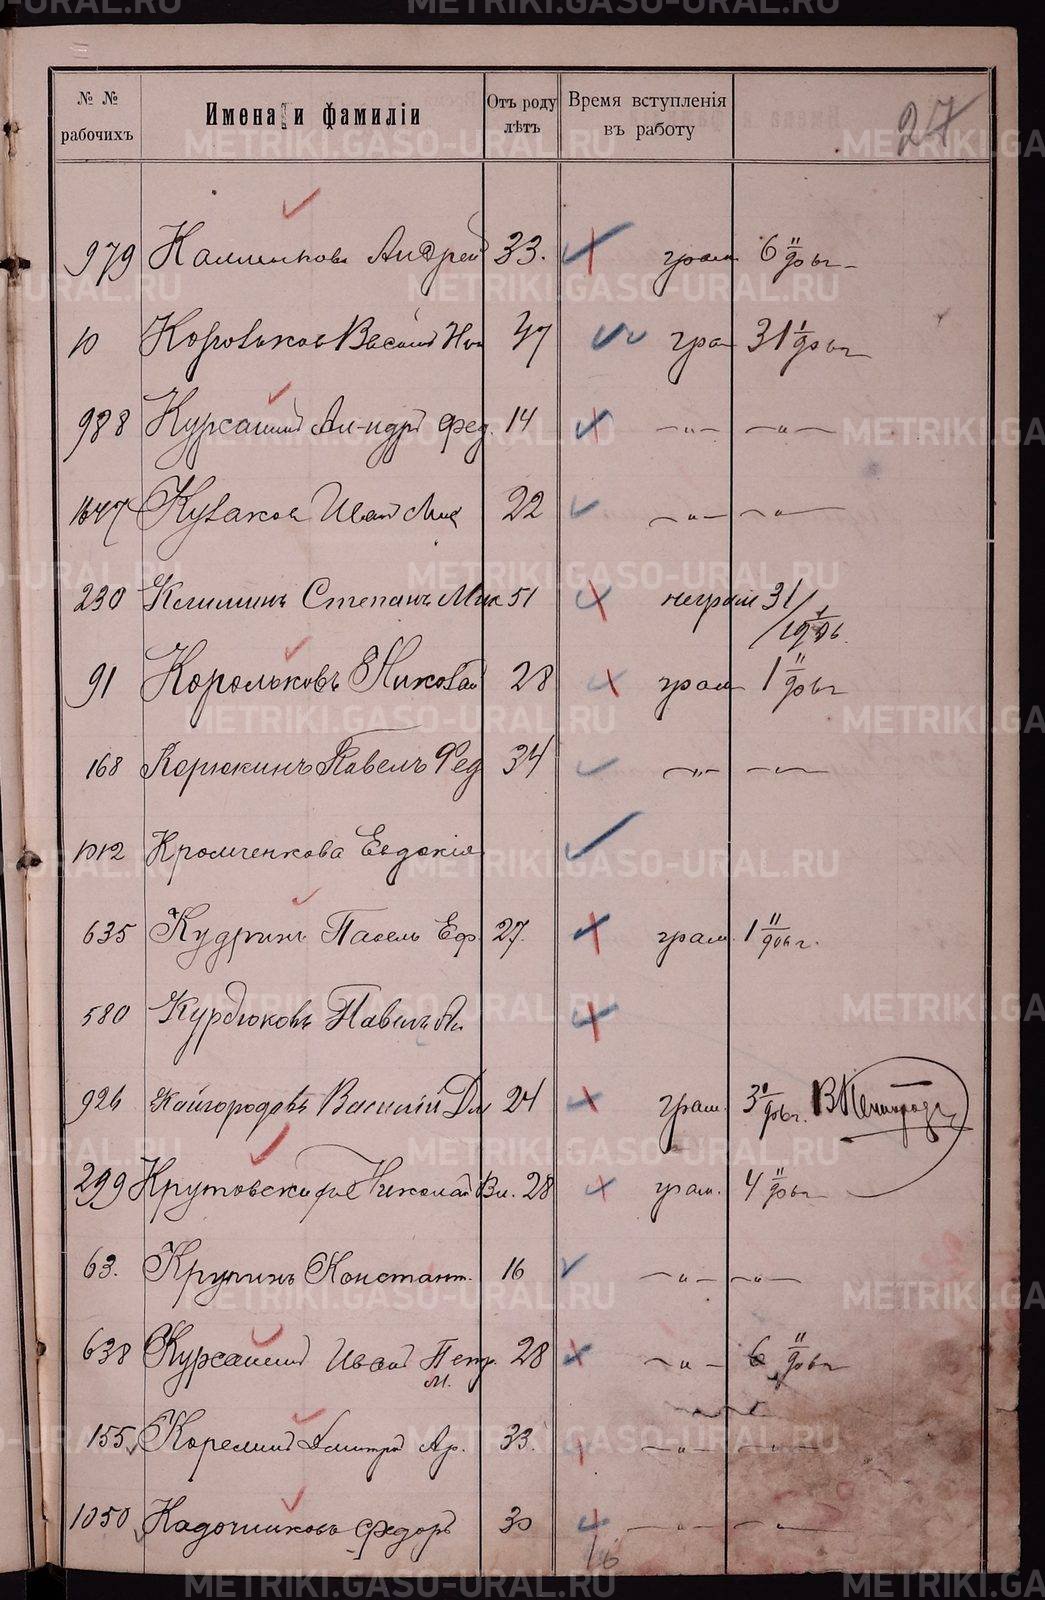 № № рабочихъ Имена и фамилiи Отъ роду лѣтъ Время вступленiя въ работу 27
979 Андрей 33. грам 6 11/906 г
10 Корольков Васил 47 гра 31 1/906 г
988 Курсанин Ал-ндр Фед. 14 —„— —„—
1647 Кулаков Иван Мих 22 —„— —„—
230 Климинъ Степанъ Мих 51 неграм 31/1 1906
91 Корольковъ Николай 28 грам 1 11/906 г
168 Корюкинъ Павелъ Фед 34 —„— —„—
1012 Кромченкова Евдокiя
635 Кудринъ Павелъ Еф. 27. грам. 1 11/906 г.
580 Курдюковъ Павелъ Ан
926 Кайгородовъ Василiй Дм 24 грам. 3 /906 г.
299 Крутовски Николай Вл. 28 грам. 4 11/906 г
63. Крупинъ Констант. 16 —„— —„—
638 Курсанин Иван Петр. 28 —„— 6 11/906 г
м.
155 Корелин Дмитрий Ар. 33. —„— —„—
1050 Кадочниковъ Федоръ 30 —„— —„—
16
METRIKI.GASO-URAL.RU